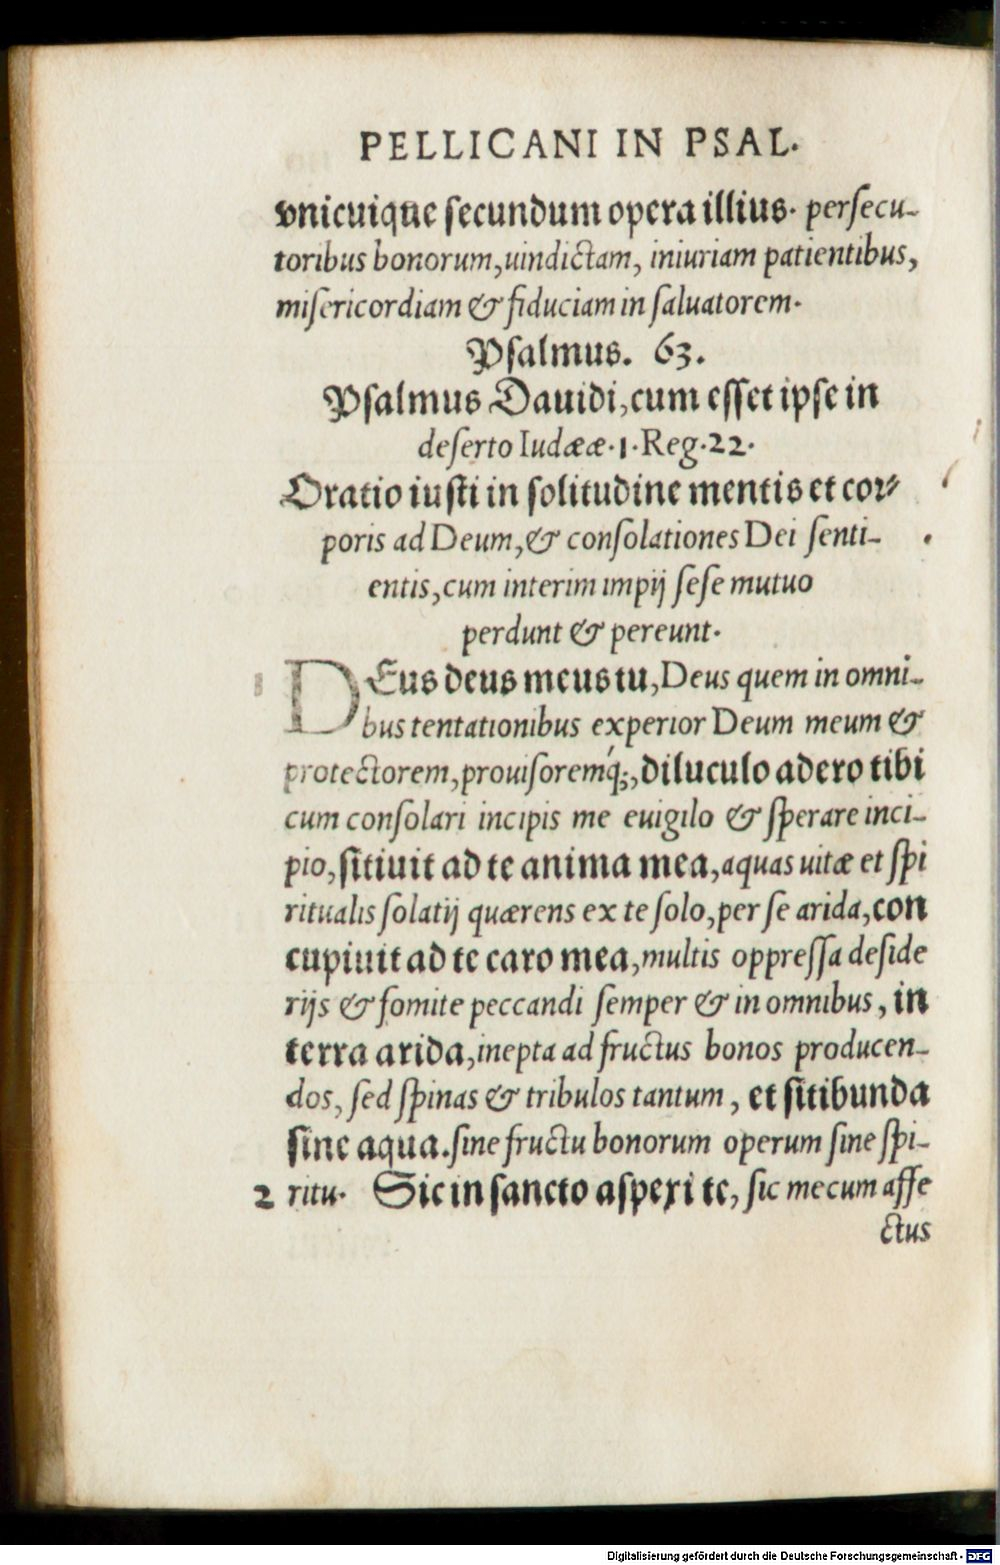 PELLICANI IN PSAL.
vnicuique secundum opera illius. persecu-
toribus bonorum, uindictam, iniuriam patientibus,
misericordiam & fiduciam in saluatorem.
Psalmus. 63.
Psalmus Dauidi, cum esset ipse in
deserto Iudææ. 1. Reg. 22.
Oratio iusti in solitudine mentis et cor-
poris ad Deum, & consolationes Dei senti-
entis, cum interim impij sese mutuo
perdunt & pereunt.
1 DEus deus meus tu, Deus quem in omni-
bus tentationibus experior Deum meum &
protectorem, prouisoremq́;, diluculo adero tibi
cum consolari incipis me euigilo & sperare inci-
pio, sitiuit ad te anima mea, aquas uitæ et spi
ritualis solatij quærens ex te solo, per se arida, con
cupiuit ad te caro mea, multis oppressa deside
rijs & fomite peccandi semper & in omnibus, in
terra arida, inepta ad fructus bonos producen-
dos, sed spinas & tribulos tantum, et sitibunda
sine aqua. sine fructu bonorum operum sine spi-
2 ritu. Sic in sancto aspexi te, sic mecum affe
ctus
Digitalisierung gefördert durch die Deutsche Forschungsgemeinschaft - DFG